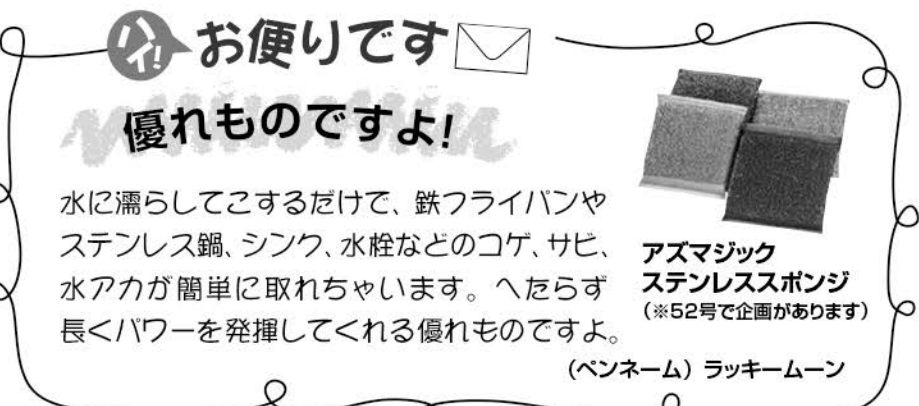 ハイ!お便りです
優れものですよ!
水に濡らしてこするだけで、鉄フライパンや
ステンレス鍋、シンク、水栓などのコゲ、サビ、
水アカが簡単に取れちゃいます。へたらず
長くパワーを発揮してくれる優れものですよ。
アズマジック
ステンレススポンジ
(※52号で企画があります)
(ペンネーム) ラッキームーン